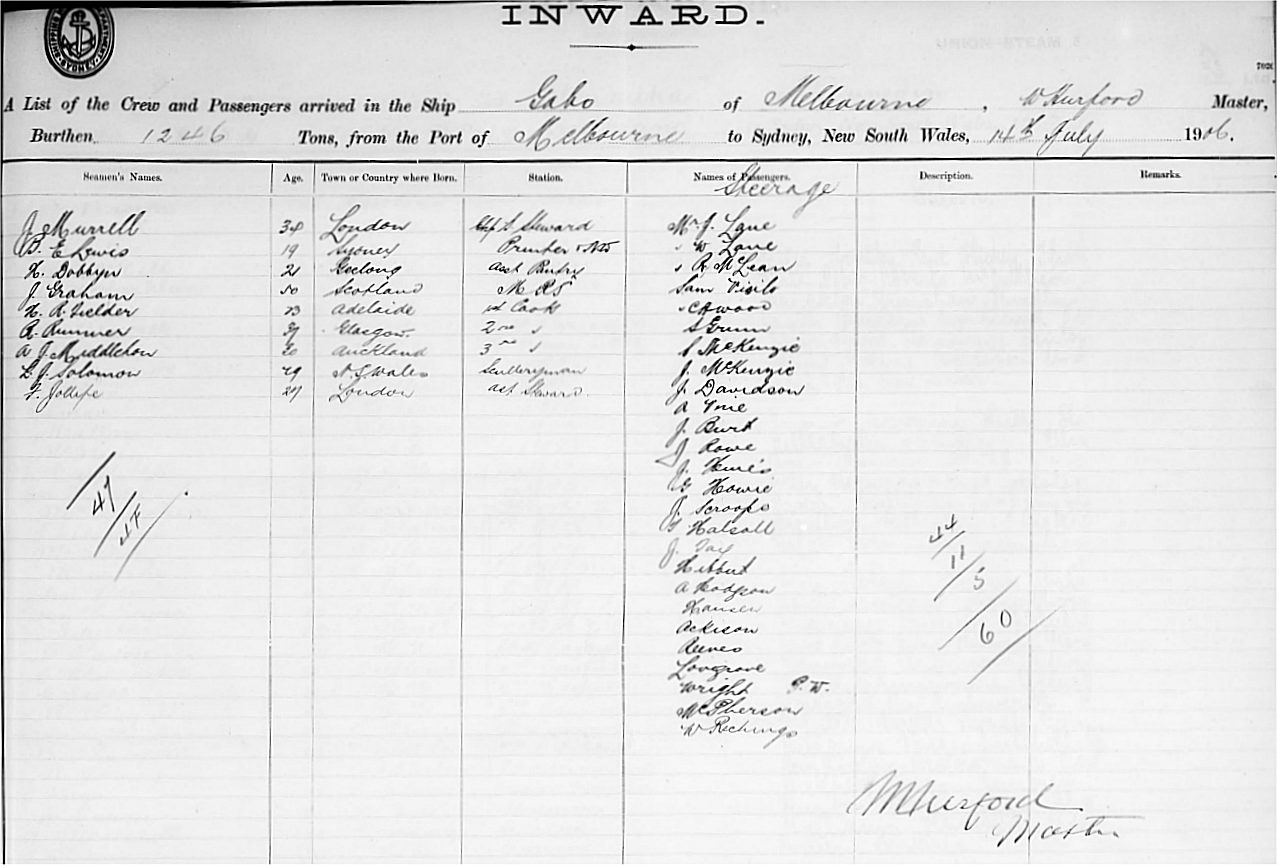 INWARD.
SHIPPING DEPARTMENT SYDNEY
A List of the Crew and Passengers arrived in the Ship Gabo of Melbourne, W Hurford Master,
Burthen 1246 Tons, from the Port of Melbourne to Sydney, New South Wales, 14th July 1906.
Seamen's Names. Age. Town or Country where Born. Station. Names of Passengers. Description. Remarks.
Steerage
J Murrell 34 London Steward Mr J. Lane
B. E Lewis 19 Sydney " W Lane
H. Dobbyn 21 Geelong asst Pantry " R McLean
J. Graham 50 Scotland M R S Sam
H. R. Fielder 23 Adelaide 1st Cook
R. Rummer 37 Glasgow 2nd " S Grunn
A J. Middleton 20 Auckland 3rd " McKenzie
L. J. Solomon 29 N. S Wales Sculleryman J. McKenzie
F. 27 London ast Steward J. Davidson
A
J. Burt
J Rowe
J.
G Howie
J. Scroops
Halsall
J.
Hibbut
A Hodgson
Hansen
Ackison
Reeves
Lovegrove
Wright P. W.
McPherson
W Rechings
47/
44/
11/
5
/60/
W Hurford
Master